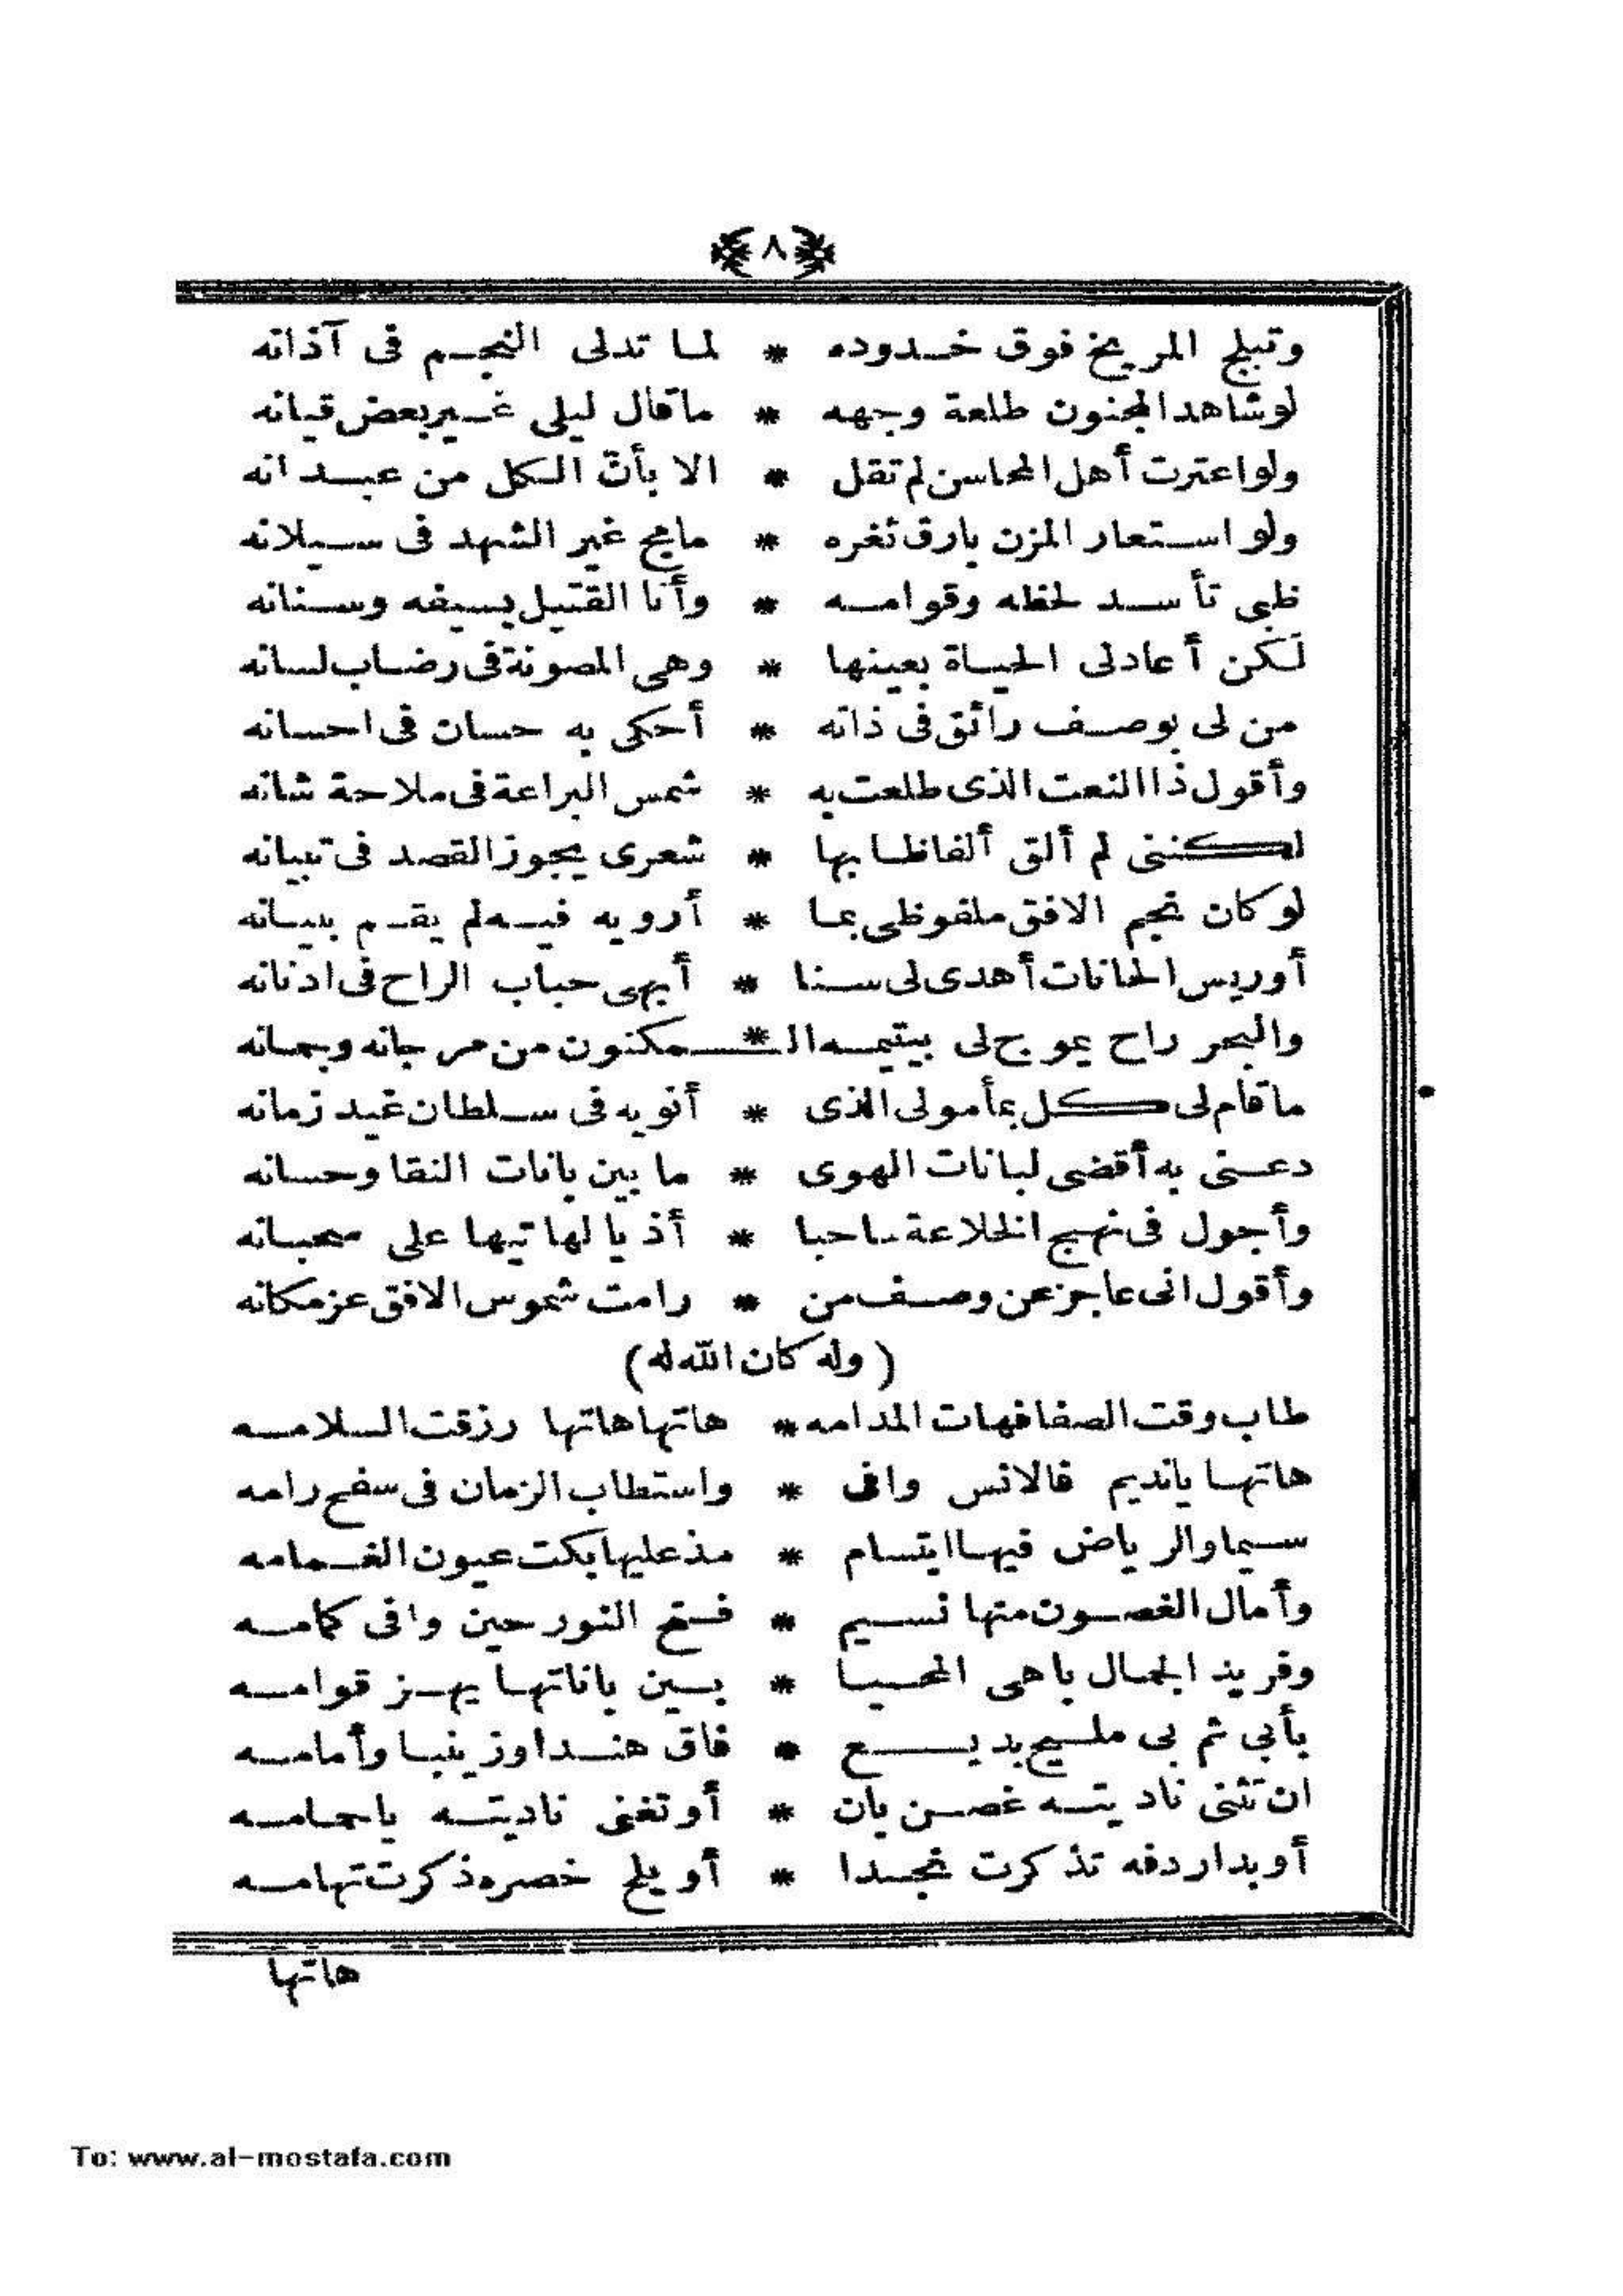 ٨
وتبلج المريخ فوق خدوده * لما تدلى النجم فى آذانه
لو شاهد المجنون طلعة وجهه * ما قال ليلى غير بعض قيانه
ولو اعترت أهل المحاسن لم تقل * الا بأنّ الكل من عبدانه
ولو استعار المزن بارق ثغره * ما مج غير الشهد فى سيلانه
ظبى تأسد لحظه وقوامه * وأنا القتيل بسيفه وسنانه
لكن أعادلى الحياة بعينها * وهى المصونة فى رضاب لسانه
من لى بوصف رائق فى ذاته * أحكى به حسان فى احسانه
وأقول ذا النعت الذى طلعت به * شمس البراعة فى ملاحة شانه
لكننى لم ألق ألفاظا بها * شعرى يجوز القصد فى تبيانه
لو كان نجم الافق ملفوظى بما * أرويه فيه لم يقم ببيانه
أوريس الحانات أهدى لى سنا * أبهى حباب الراح فى ادنانه
والبحر راح يموج لى بيتيمه الـ * ـمكنون من مرجانه وجمانه
ما قام لى كل بمأمولى الذى * أنويه فى سلطان غيد زمانه
دعنى به أقضى لبانات الهوى * ما بين بانات النقا وحسانه
وأجول فى نهج الخلاعة ساحبا * أذيالها تيها على سحبانه
وأقول انى عاجز عن وصف من * رامت شموس الافق عز مكانه
(وله كان الله له)
طاب وقت الصفا فهات المدامه * هاتها هاتها رزقت السلامه
هاتها يا نديم فالانس وافى * واستطاب الزمان فى سفح رامه
سيما والرياض فيها ابتسام * مذ عليها بكت عيون الغمامه
وأمال الغصون منها نسيم * فتح النور حين وافى كمامه
وفريد الجمال باهى المحيا * بين باناتها يهز قوامه
بأبى ثم بى مليح بديع * فاق هندا وزينبا وأمامه
ان تثنى ناديته غصن بان * أو تغنى ناديته يا حمامه
أو بدا ردفه تذكرت نجدا * أو يلح خصره ذكرت تهامه
هاتها
To: www.al-mostafa.com